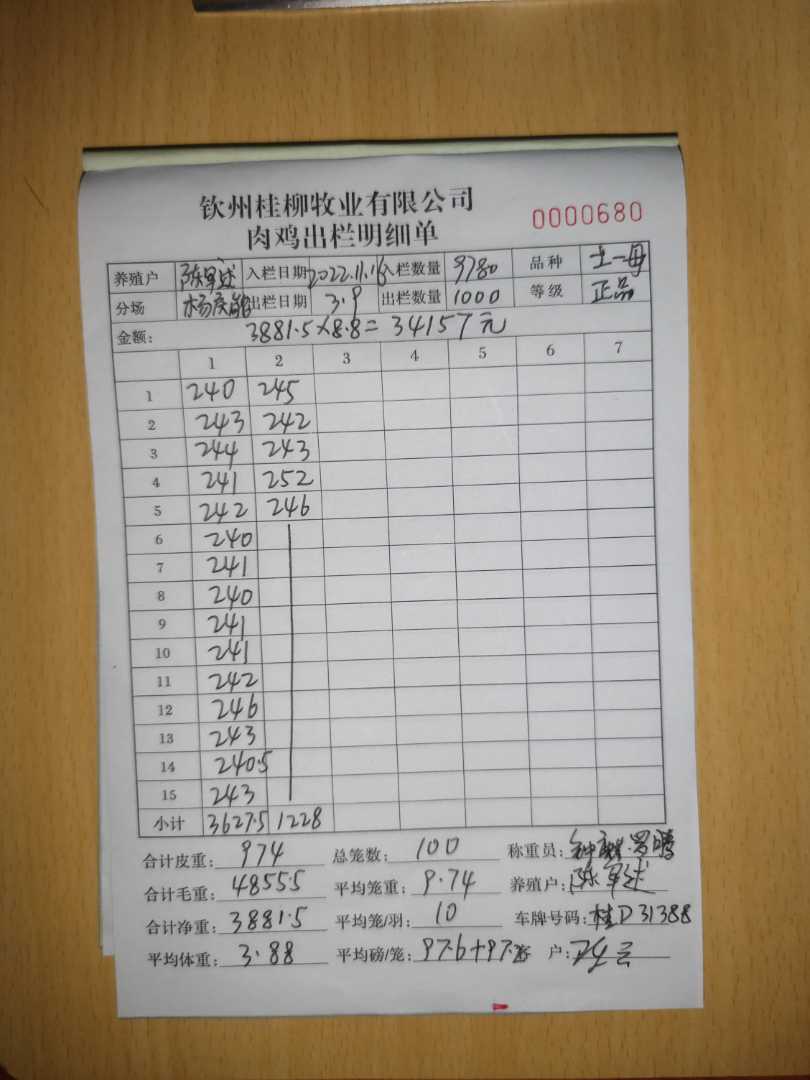 钦州桂柳牧业有限公司
肉鸡出栏明细单 0000680
养殖户 陈军述 入栏日期 2022.11.16 入栏数量 9780 品种 土一母
分场 出栏日期 3.9 出栏数量 1000 等级 正品
金额: 3881.5×8.8=34157元
1 2 3 4 5 6 7
1 240 245
2 243 242
3 244 243
4 241 252
5 242 246
6 240
7 241
8 240
9 241
10 241
11 242
12 246
13 243
14 240.5
15 243
小计 3627.5 1228
合计皮重: 974 总笼数: 100 称重员:
合计毛重: 4855.5 平均笼重: 9.74 养殖户: 陈军述
合计净重: 3881.5 平均笼/羽: 10 车牌号码: 桂D31388
平均体重: 3.88 平均磅/笼: 97.6+97. 户: